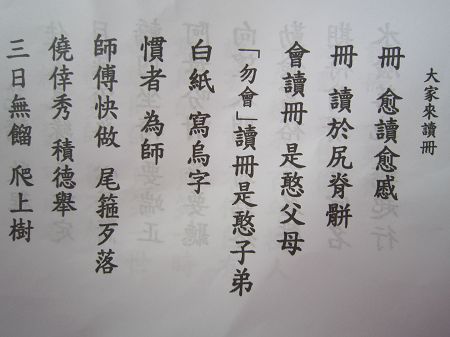 大家來讀冊
冊 愈讀愈戚
冊 讀於尻脊骿
會讀冊 是憨父母
「勿會」讀冊是憨子弟
白紙 寫烏字
慣者 為師
師傅快做 尾箍歹落
僥倖秀 積德舉
三日無餾 爬上樹